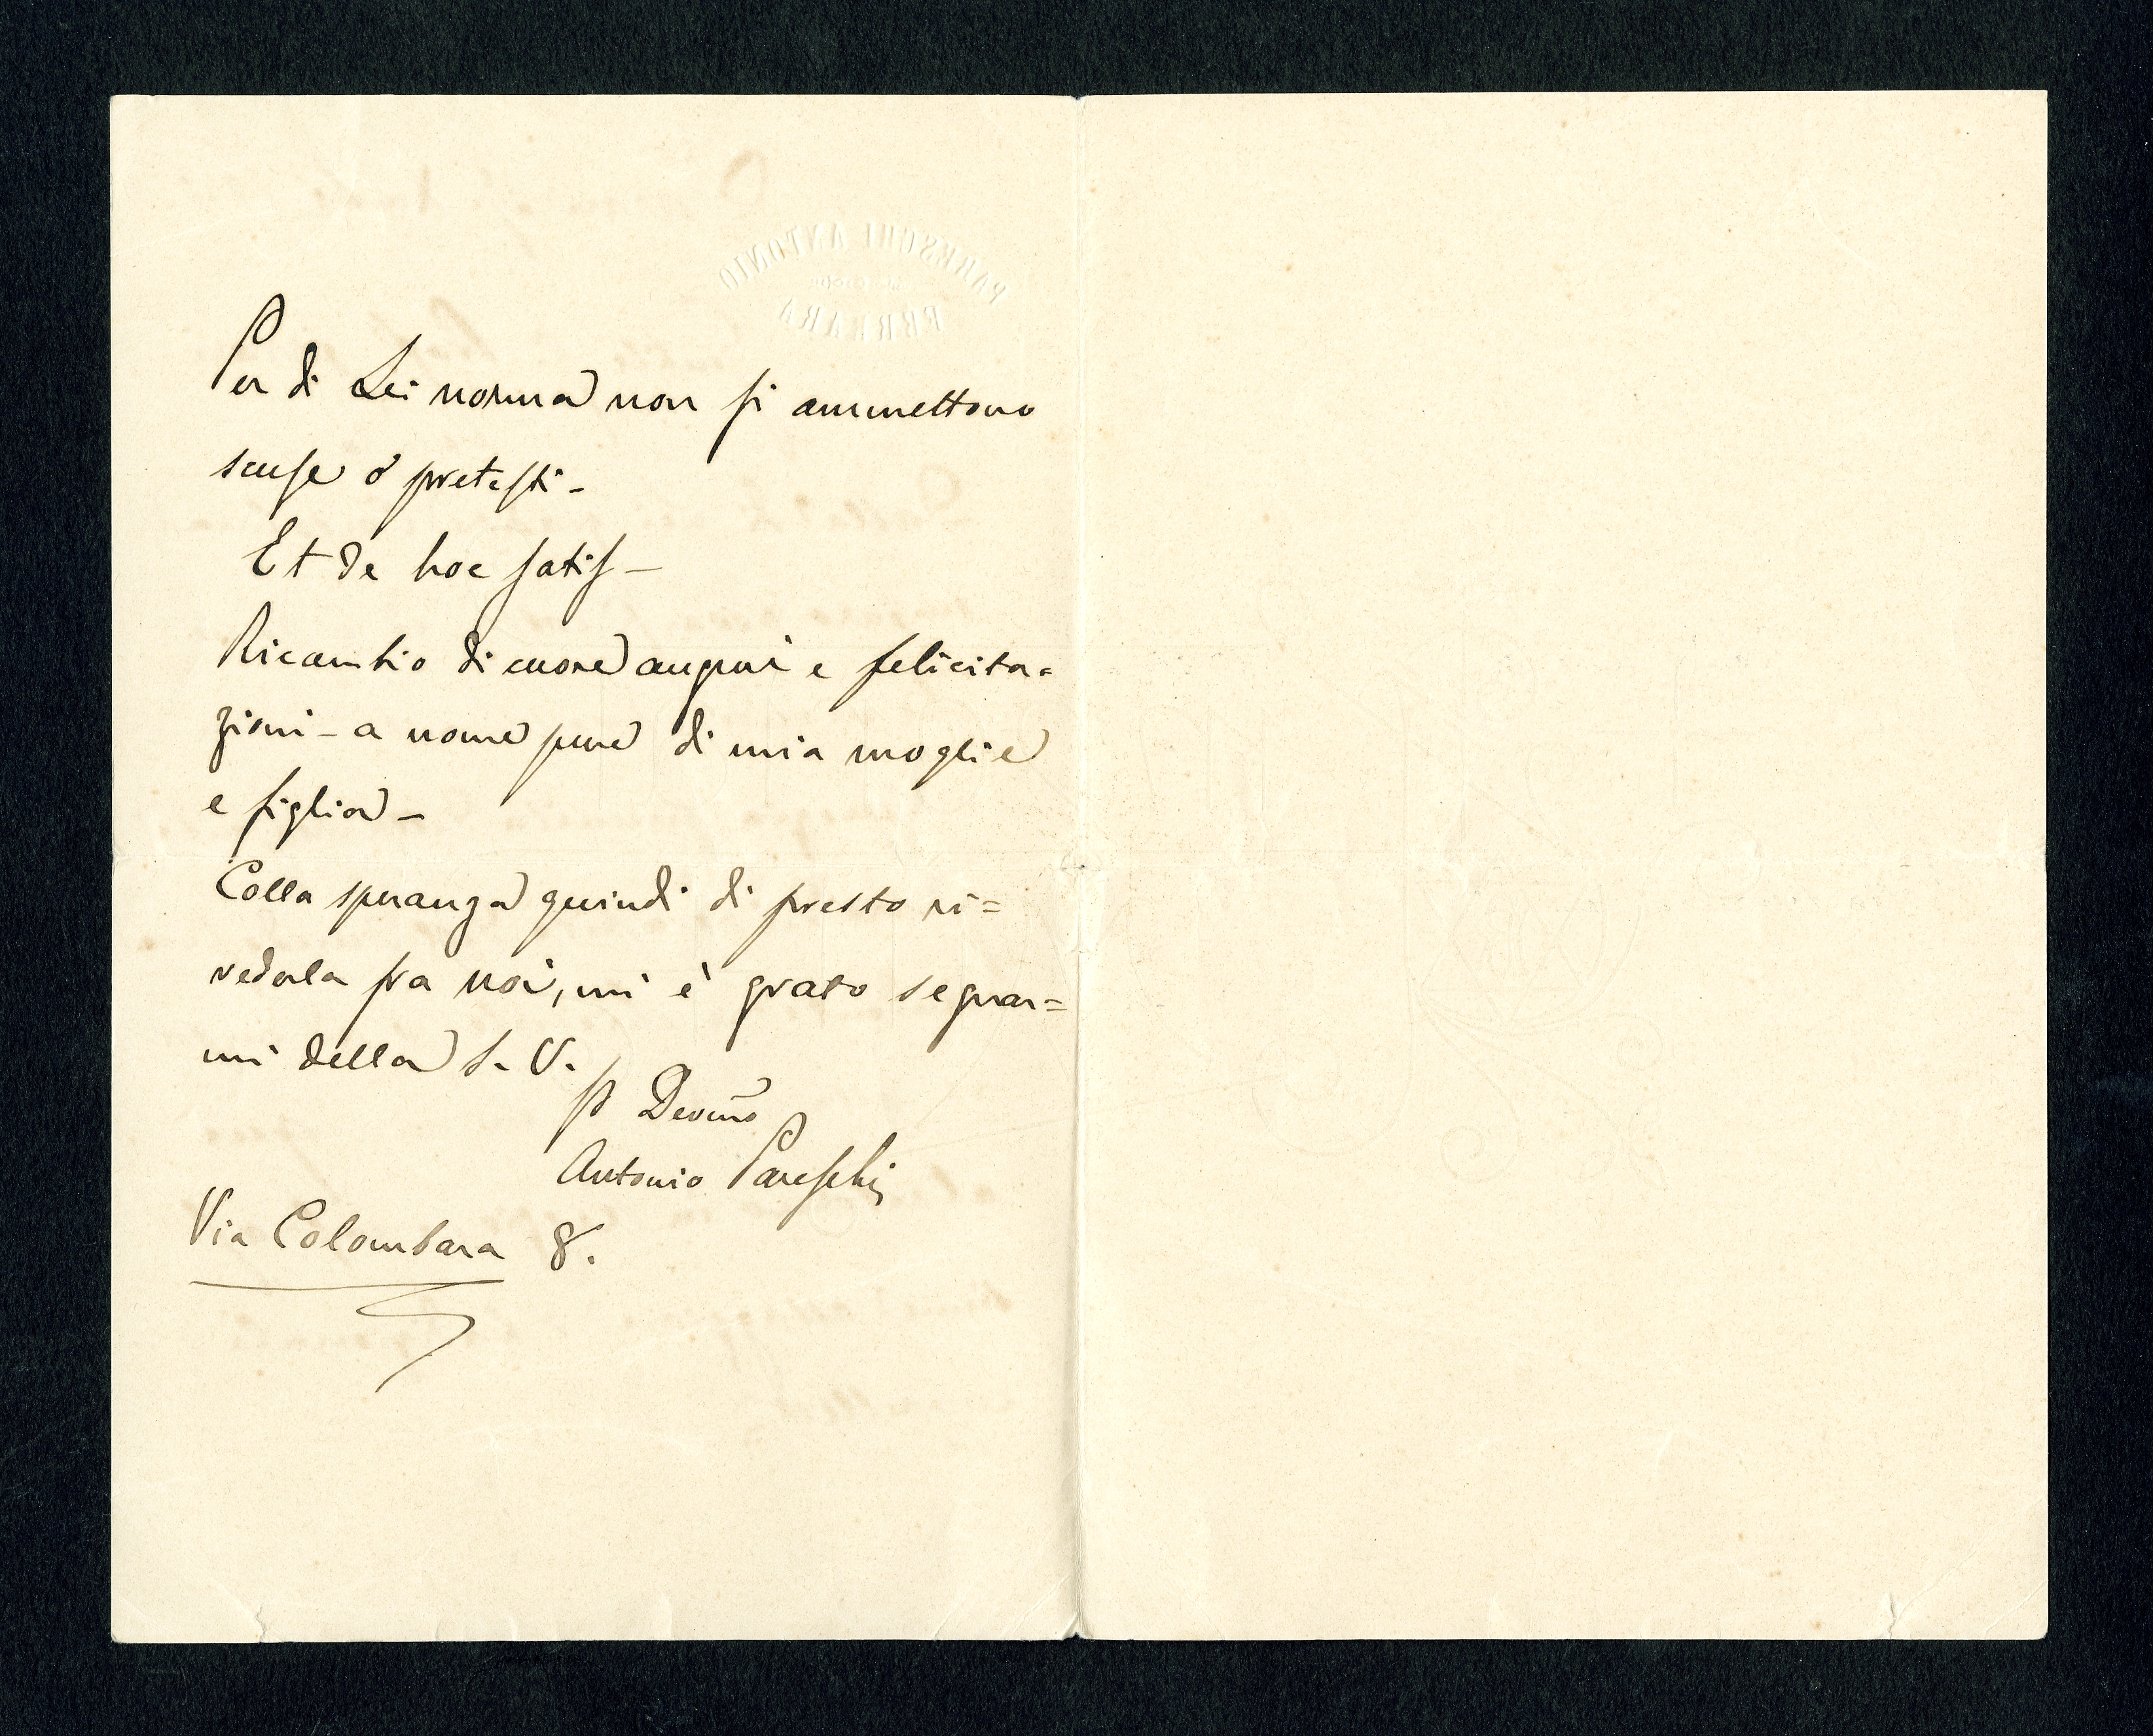 PARESCHI ANTONIO
FERRARA
Per di Lei norma non si ammettono
scuse o pretesti -
Et de hoc satis -
Ricambio di cuore auguri e felicita=
zioni - a nome pure di mia moglie
e figlia -
Colla speranza quindi di presto ri=
vederla fra noi, mi è grato segnar=
mi della S. V.
Devmo
Antonio Pareschi
Via Colombara 8.